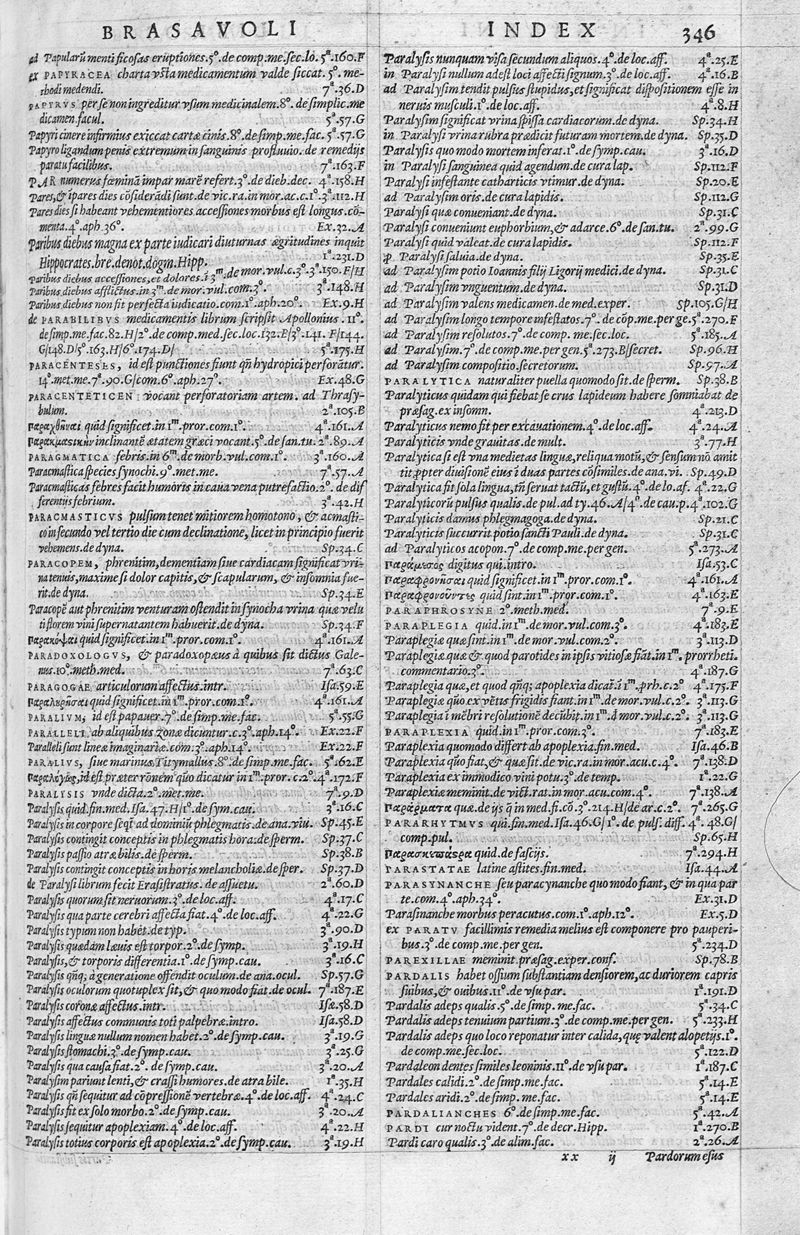 BRASAVOLI INDEX 346
ad Papularū menti ficosas eruptiones.5º.de comp.me.sec.lo. 5ª.160.F
ex PAPYRACEA charta vsta medicamentum valde siccat. 5º. me-
thodi medendi. 7ª.36.D
PAPYRVS per se non ingreditur vsum medicinalem.8º.de simplic.me
dicamen.facul. 5ª.57.G
Papyri cinere infirmius exiccat cartæ cinis.8º.de simp.me.fac. 5ª.57.G
Papyro ligandum penis extremum in sanguinis profluuio.de remedijs
paratu facilibus. 7ª.163.F
PAR numerus fœminā impar marē refert.3º.de dieb.dec. 4ª.158.H
Pares,& īpares dies cōsiderādi sunt.de vic.ra.in mor.ac.c.1º.3ª.112.H
Pares dies si habeant vehementiores accessiones morbus est longus.cō-
menta.4º.aph.36º. Ex.32.A
Paribus diebus magna ex parte iudicari diuturnas ægritudines inquit
Hippocrates.bre.denot.dogm.Hipp. 1ª.231.D
Paribus diebus accessiones,et dolores.i 3ᵐ.de mor.vul.c.3º.3ª.150.F/H
Paribus diebus afflictus.in 3ᵐ.de mor.vul.com.3º. 3ª.148.H
Paribus diebus non fit perfecta iudicatio.com.1º.aph.20º. Ex.9.H
de PARABILIBVS medicamentis librum scripsit Apollonius .11º.
de simp.me.fac.82.H/2º.de comp.med.sec.loc.132.E/3º.141. F/144.
G/148.D/5º.163.H/6º.174.D/ 5ª.175.H
PARACENTESES, id est punctiones fiunt qñ hydropici perforātur.
14º.met.me.7ª.90.G/com.6º.aph.27º. Ex.48.G
PARACENTETICEN vocant perforatoriam artem. ad Thrasy-
bulum. 2ª.105.B
παραχθῆναι quid significet.in 1ᵐ.pror.com.1º. 4ª.161.A
παρακμαστικὴν inclinantē ætatem græci vocant.5º.de san.tu. 2ª.89.A
PARAGMATICA febris.in 6ᵐ.de morb.vul.com.1º. 3ª.160.A
Paracmastica species synochi.9º.met.me. 7ª.57.A
Paracmasticas febres facit humoris in caua vena putrefactio.2º.de dif
ferentijs febrium. 3ª.42.H
PARACMASTICVS pulsum tenet mītiorem homotono, & acmasti-
co in secundo vel tertio die cum declinatione, licet in principio fuerit
vehemens.de dyna. Sp.34.C
PARACOPEM, phrenitim,dementiam siue cardiacam significat vri-
na tenuis,maxime si dolor capitis,& scapularum, & insomnia fue-
rit.de dyna. Sp.34.E
Paracopē aut phrenitim venturam ostendit in synocha vrina quæ velu
ti florem vini supernatantem habuerit.de dyna. Sp.34.F
παρακόψαι quid significet.in 1ᵐ.pror.com.1º. 4ª.161.A
PARADOXOLOGVS, & paradoxopæus à quibus sit dictus Gale-
nus.10º.meth.med. 7ª.63.C
PARAGOGAE articulorum affectus.intr. Isa.59.E
quid significet.in 1ᵐ.pror.com.1º. 4ª.161.A
PARALIVM, id est papauer.7º.de simp.me.fac. 5ª.55.G
PARALLELI ab aliquibus zonæ dicuntur.c.3º.aph.14º. Ex.22.F
Paralleli sunt lineæ imaginariæ.com.3º.aph.14º. Ex.22.F
PARALIVS, siue marinus Titymallus.8º.de simp.me.fac. 5ª.62.E
παραλόγως,id est præter rōnem quo dicatur in 1ᵐ.pror.c.2º.4ª.172.F
PARALYSIS vnde dicta.2º.met.me. 7ª.9.D
Paralysis quid.fin.med.Isa.47.H/1º.de sym.cau. 3ª.16.C
Paralysis in corpore seqt ad dominiū phlegmatis.de ana.viu. Sp.45.E
Paralysis contingit conceptis in phlegmatis hora.de sperm. Sp.37.C
Paralysis passio atræ bilis.de sperm. Sp.38.B
Paralysis contingit conceptis in horis melancholiæ.de sper. Sp.37.D
de Paralysi librum fecit Erasistratus. de assuetu. 2ª.60.D
Paralysis quorum sit neruorum.3º.de loc.aff. 4ª.17.C
Paralysis qua parte cerebri affecta fiat.4º.de loc.aff. 4ª.22.G
Paralysis typum non habet.de typ. 3ª.90.D
Paralysis quædam læuis est torpor.2º.de symp. 3ª.19.H
Paralysis,& torporis differentia.1º.de symp.cau. 3ª.16.C
Paralysis qñq; à generatione offendit oculum.de ana.ocul. Sp.57.G
Paralysis oculorum quotuplex sit,& quo modo fiat.de ocul. 7ª.187.E
Paralysis coronæ affectus.intr. Isa.58.D
Paralysis affectus communis toti palpebræ.intro. Isa.58.D
Paralysis linguæ nullum nomen habet.2º.de symp.cau. 3ª.19.G
Paralysis stomachi.3º.de symp.cau. 3ª.25.G
Paralysis qua causa fiat.2º.de symp.cau. 3ª.20.A
Paralysim pariunt lenti,& crassi humores.de atra bile. 1ª.35.H
Paralysis qñ sequitur ad cōpressionē vertebræ.4º.de loc.aff. 4ª.24.C
Paralysis fit ex solo morbo.2º.de symp.cau. 3ª.20.A
Paralysis sequitur apoplexiam.4º.de loc.aff. 4ª.22.H
Paralysis totius corporis est apoplexia.2º.de symp.cau. 3ª.19.H
Paralysis nunquam visa secundum aliquos.4º.de loc.aff. 4ª.25.E
in Paralysi nullum adest loci affecti signum.3º.de loc.aff. 4ª.16.B
ad Paralysim tendit pulsus stupidus,et significat dispositionem esse in
neruis musculi.1º.de loc.aff. 4ª.8.H
Paralysim significat vrina spissa cardiacorum.de dyna. Sp.34.H
in Paralysi vrina rubra prædicit futuram mortem.de dyna. Sp.35.D
Paralysis quo modo mortem inferat.1º.de symp.cau. 3ª.16.D
in Paralysi sanguinea quid agendum.de cura lap. Sp.112.F
Paralysi infestante catharticis vtimur.de dyna. Sp.20.E
ad Paralysim oris.de cura lapidis. Sp.112.G
Paralysi quæ conueniant.de dyna. Sp.31.C
Paralysi conueniunt euphorbium,& adarce.6º.de san.tu. 2ª.99.G
Paralysi quid valeat.de cura lapidis. Sp.112.F
p Paralysi saluia.de dyna. Sp.35.E
ad Paralysim potio Ioannis filij Ligorij medici.de dyna. Sp.31.C
ad Paralysim vnguentum.de dyna. Sp.31.D
ad Paralysim valens medicamen.de med.exper. Sp.105.G/H
ad Paralysim longo tempore infestatos.7º.de cōp.me.per ge.5ª.270.F
ad Paralysim resolutos.7º.de comp. me.sec.loc. 5ª.185.A
ad Paralysim.7º.de comp.me.per gen.5ª.273.B/secret. Sp.96.H
ad Paralysim compositio.secretorum. Sp.97.A
PARALYTICA naturaliter puella quomodo sit.de sperm. Sp.38.B
Paralyticus quidam qui fiebat se crus lapideum habere somniabat de
præsag.ex insomn. 4ª.213.D
Paralyticus nemo fit per excauationem.4º.de loc.aff. 4ª.24.A
Paralyticis vnde grauitas.de mult. 3ª.77.H
Paralytica si est vna medietas linguæ,reliqua motū,& sensum nō amit
tit,ppter diuisionē eius ī duas partes cōsimiles.de ana.vi. Sp.49.D
Paralytica fit sola lingua,tñ seruat tactū,et gustū.4º.de lo.af. 4ª.22.G
Paralyticorū pulsus qualis.de pul.ad ty.46.A/4º.de cau.p.4ª.102.G
Paralyticis damus phlegmagoga.de dyna. Sp.21.C
Paralyticis succurrit potio sancti Pauli.de dyna. Sp.31.C
ad Paralyticos acopon.7º.de comp.me.per gen. 5ª.273.A
παράμεσος digitus qui.intro. Isa.53.C
παραφρονῆσαι quid significet.in 1ᵐ.pror.com.1º. 4ª.161.A
παραφρονοῦντες quid sint.in 1ᵐ.pror.com.1º. 4ª.163.E
PARAPHROSYNE 2º.meth.med. 7ª.9.E
PARAPLEGIA quid.in 1ᵐ.de mor.vul.com.3º. 4ª.183.E
Paraplegiæ quæ sint.in 1ᵐ.de mor.vul.com.2º. 3ª.113.D
Paraplegiæ quæ & quod parotides in ipsis vitiosæ fiāt.in 1ᵐ. prorrheti.
commentario.3º. 4ª.187.G
Paraplegia quæ,et quod qñq; apoplexia dicar.ī 1ᵐ.prh.c.2º 4ª.175.F
Paraplegiæ quō ex vētris frigidis fiant.in 1ᵐ.de mor.vul.c.2º. 3ª.113.G
Paraplegia ī mēbri resolutionē decūbit.in 1ᵐ.d mor.vul.c.2º. 3ª.113.G
PARAPLEXIA quid.in 1ᵐ.pror.com.3º. 7ª.183.E
Paraplexia quomodo differt ab apoplexia.fin.med. Isa.46.B
Paraplexia quō fiat,& quæ sit.de vic.ra.in mor.acu.c.4º. 7ª.138.D
Paraplexia ex immodico vini potu.3º.de temp. 1ª.22.G
Paraplexiæ meminit.de vict.rat.in mor.acu.com.4º. 7ª.138.A
παράρματα quæ.de ijs q in med.fi.cō.3º.214.H/de ar.c.2º. 7ª.265.G
PARARHYTMVS qui.fin.med.Isa.46.G/1º.de puls.diff.4ª.48.G/
comp.pul. Sp.65.H
quid.de fascijs. 7ª.294.H
PARASTATAE latine astites.fin.med. Isa.44.A
PARASYNANCHE seu paracynanche quo modo fiant,& in qua par
te.com.4º.aph.34º. Ex.31.D
Parasinanche morbus peracutus.com.1º.aph.12º. Ex.5.D
ex PARATV facillimis remedia melius est componere pro pauperi-
bus.3º.de comp.me.per gen. 5ª.234.D
PAREXILLAE meminit præsag.exper.conf. Sp.78.B
PARDALIS habet ossium substantiam densiorem,ac duriorem capris
suibus,& ouibus.11º.de vsu par. 1ª.191.D
Pardalis adeps qualis.5º.de simp. me.fac. 5ª.34.C
Pardalis adeps tenuium partium.3º.de comp.me.per gen. 5ª.233.H
Pardalis adeps quo loco reponatur inter calida,quę valent alopetijs.1º.
de comp.me.sec.loc. 5ª.122.D
Pardaleon dentes similes leoninis.11º.de vsu par. 1ª.187.C
Pardales calidi.2º.de simp.me.fac. 5ª.14.E
Pardales aridi.2º.de simp.me.fac. 5ª.14.E
PARDALIANCHES 6º.de simp.me.fac. 5ª.42.A
PARDI cur noctu vident.7º.de decr.Hipp. 1ª.270.B
Pardi caro qualis.3º.de alim.fac. 2ª.26.A
xx ij Pardorum esus